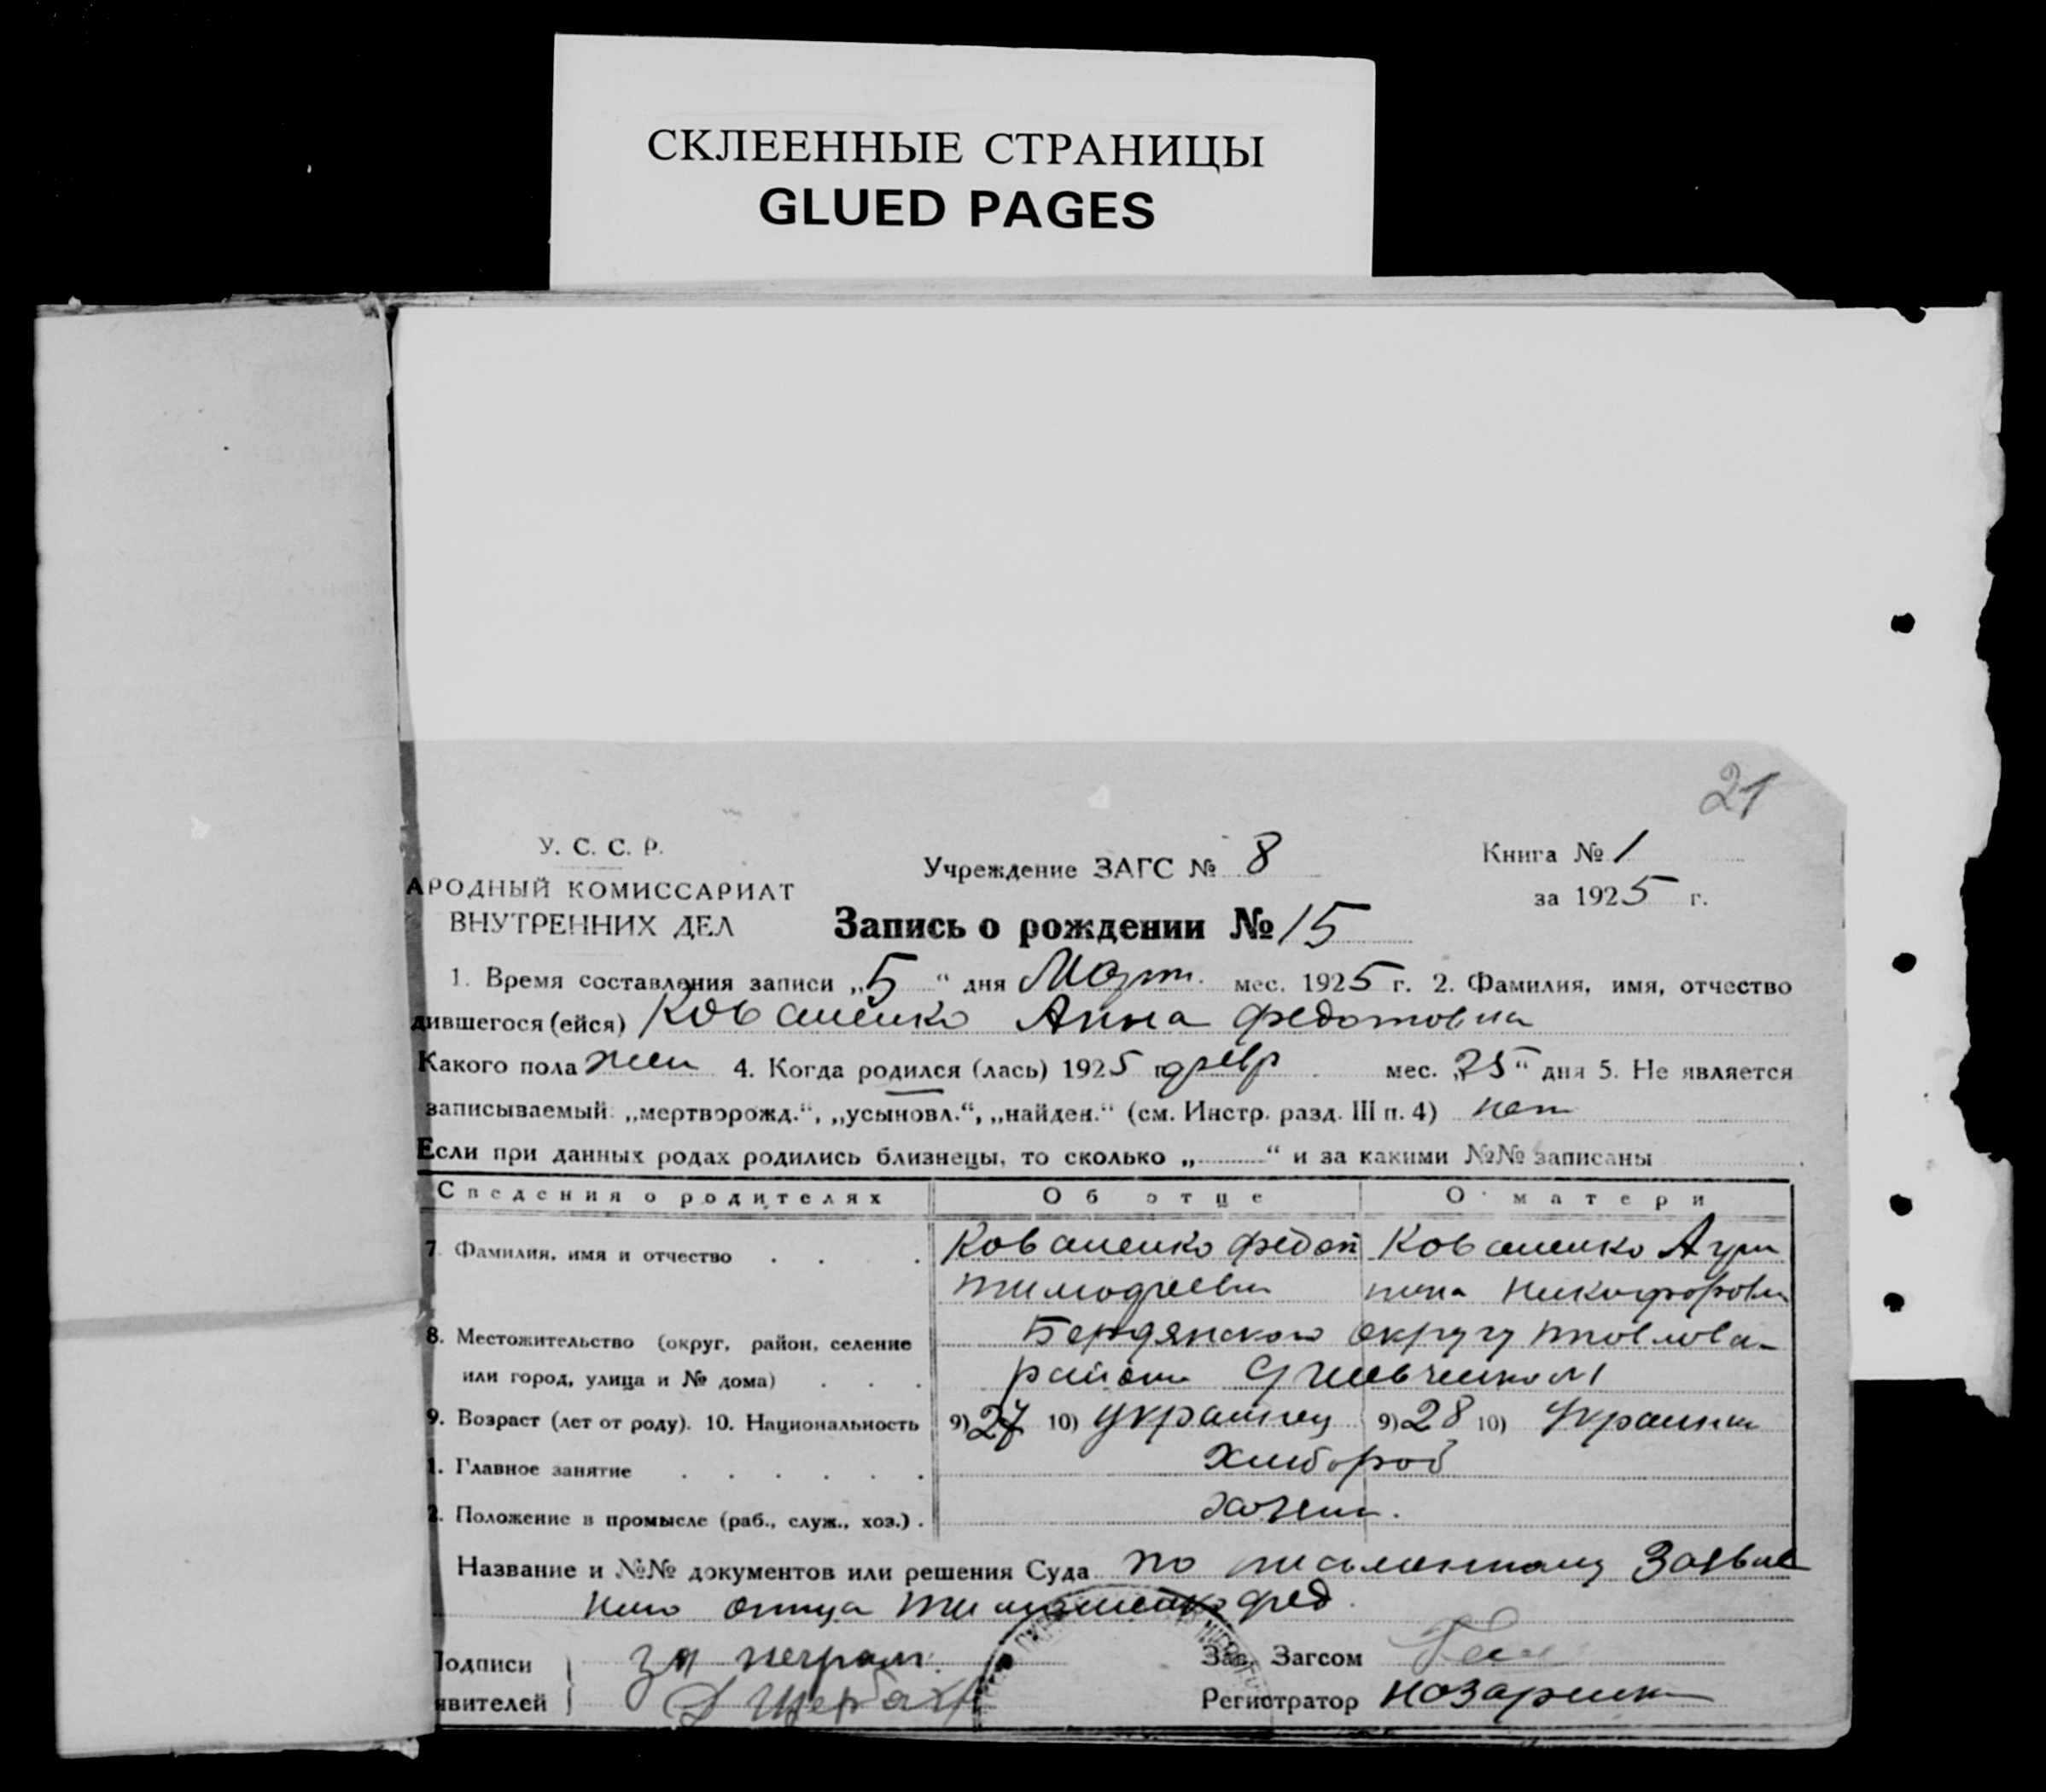 СКЛЕЕННЫЕ СТРАНИЦЫ
GLUED PAGES
21
У. С. С. Р.
АРОДНЫЙ КОМИССАРИАТ
ВНУТРЕННИХ ДЕЛ
Учреждение ЗАГС № 8
Книга № 1
за 1925 г.
Запись о рождении № 15
1. Время составления записи „5“ дня Март. мес. 1925 г. 2. Фамилия, имя, отчество
дившегося (ейся) Коваленко Анна Федотовна
Какого пола жен 4. Когда родился (лась) 1925 г. февр мес. „25“ дня 5. Не является
записываемый: „мертворожд.“, „усыновл.“, „найден.“ (см. Инстр. разд. III п. 4) нет
Если при данных родах родились близнецы, то сколько „.......“ и за какими №№ записаны
Сведения о родителях Об отце О матери
7. Фамилия, имя и отчество Коваленко Федот Коваленко Агри
пина Никифоровн
8. Местожительство (округ, район, селение Бердянского округу
или город, улица и № дома) район
9. Возраст (лет от роду). 10. Национальность 9) 27 10) украинец 9) 28 10) Украинка
1. Главное занятие Хлибороб
2. Положение в промысле (раб., служ., хоз.) хозяин.
Название и №№ документов или решения Суда по письменному Заявле
нию отца фед.
Подписи за неграм.
явителей Д Щербак
Зав. Загсом
Регистратор